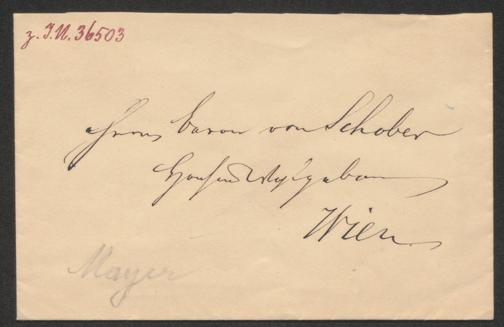 z. I.N. 36503
Herrn Baron von Schober
Hochwohlgeboren
Wien
Mayer